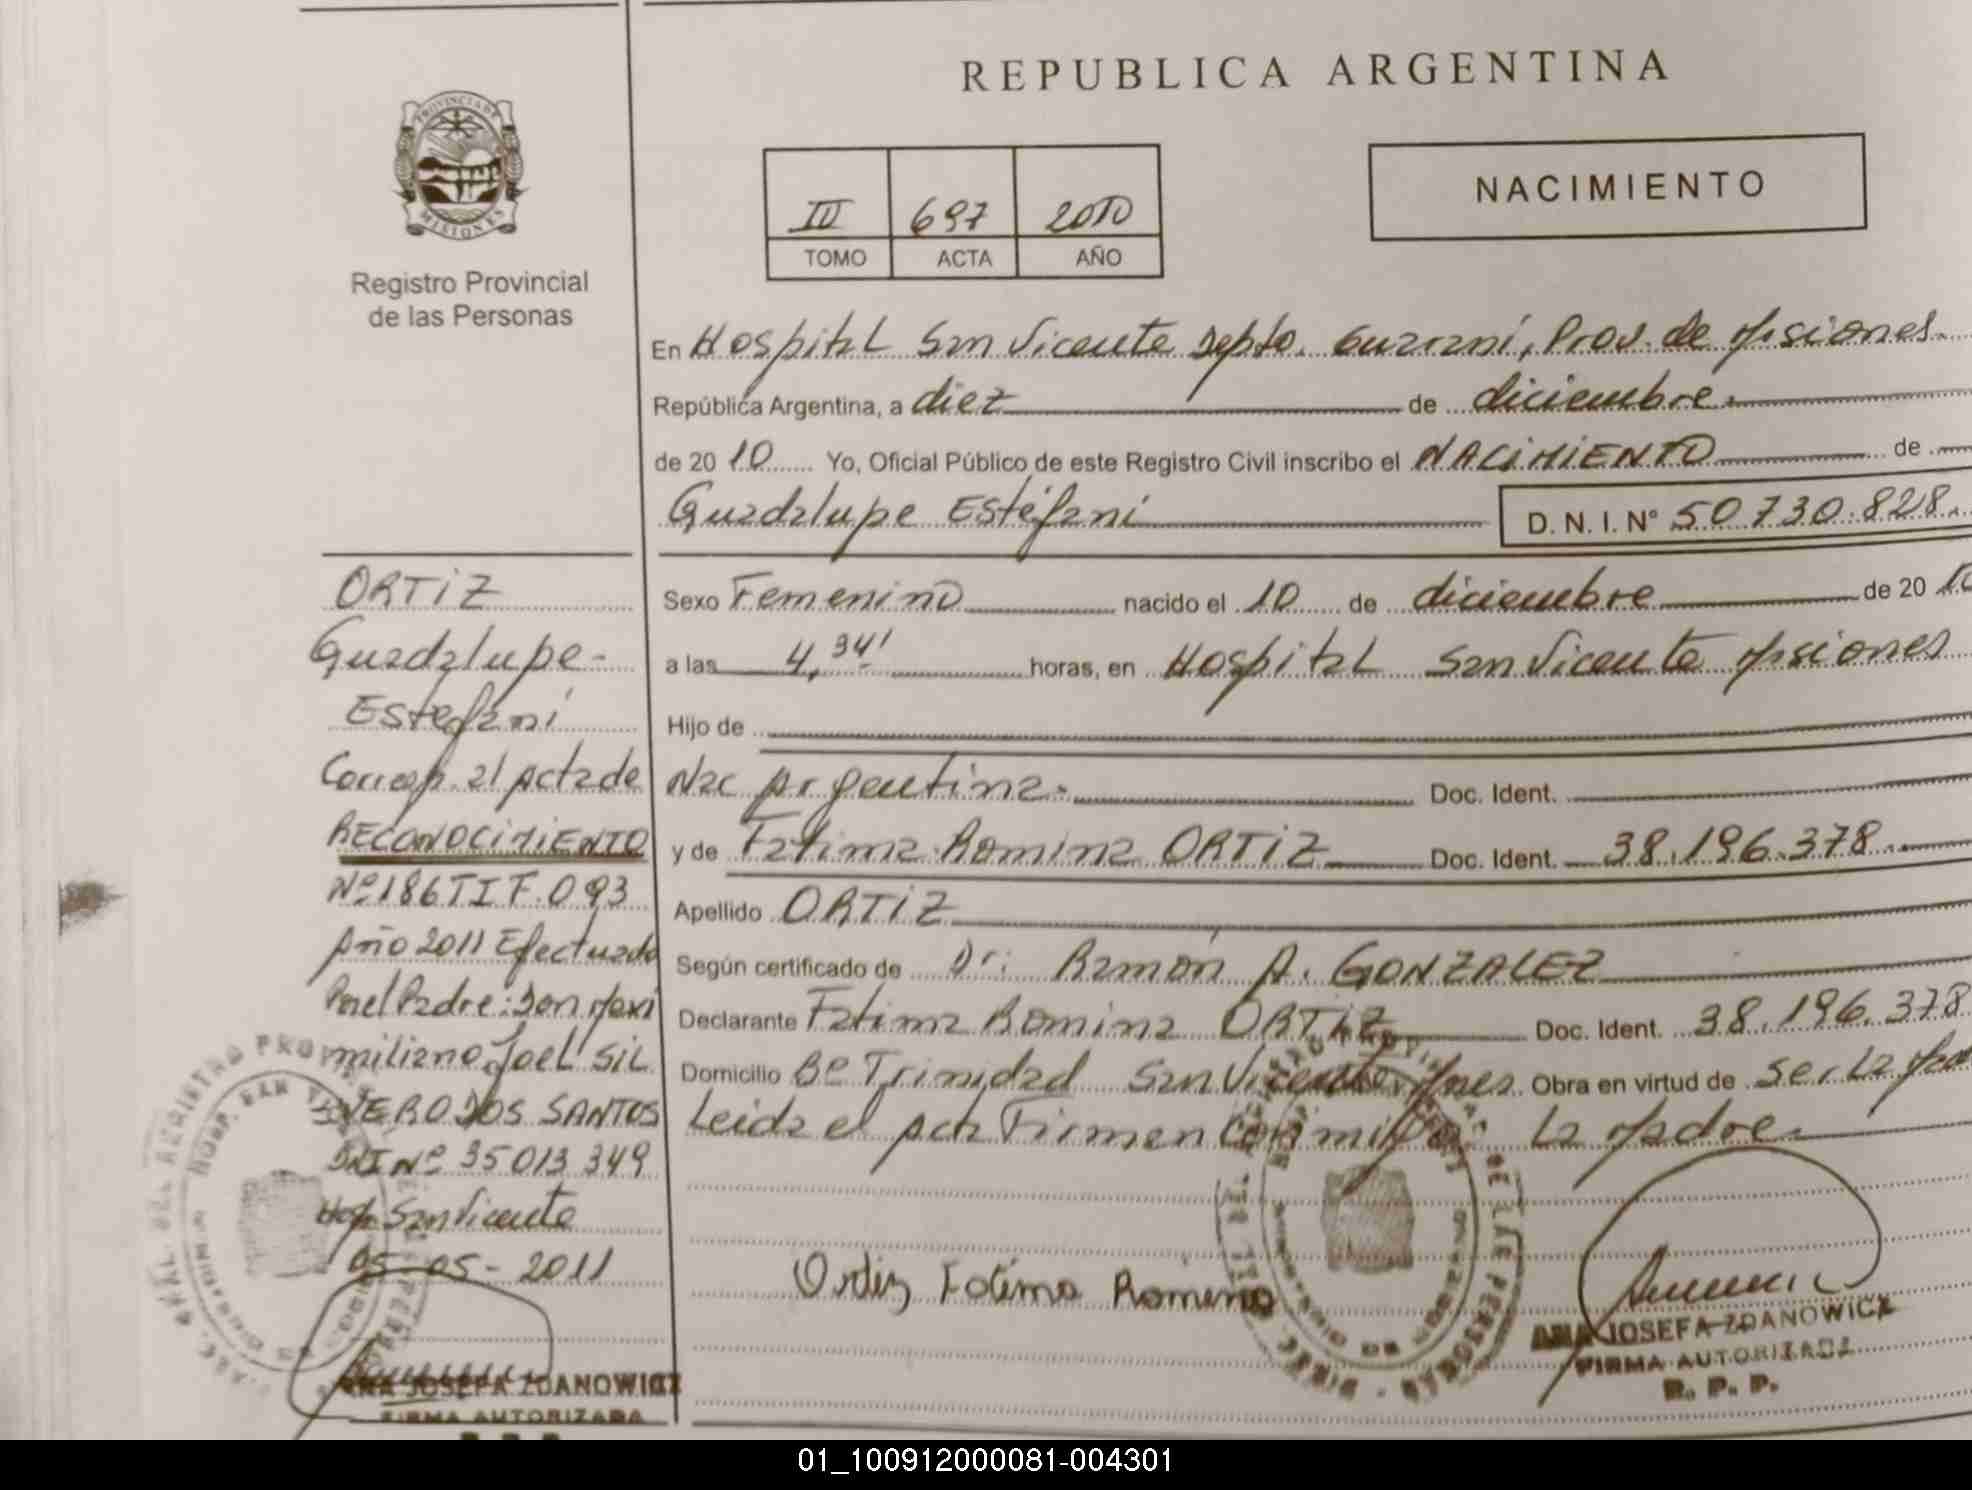 REPUBLICA ARGENTINA
PROVINCIA DE
MISIONES
Registro Provincial
de las Personas
III 697 2010
TOMO ACTA AÑO
NACIMIENTO
En Hospital San Vicente Depto. Guaraní, Prov. de Misiones.
República Argentina, a diez de diciembre.
de 20 10 Yo, Oficial Público de este Registro Civil inscribo el NACIMIENTO de
Guadalupe Estéfani
D. N. I. Nº 50.730.828.
Sexo Femenino nacido el 10 de diciembre de 20 10
a las 4,34' horas, en Hospital San Vicente Misiones
Hijo de
Nac Argentina. Doc. Ident.
y de Fatima Romina ORTIZ Doc. Ident. 38.196.378.
Apellido ORTIZ
Según certificado de Dr: Ramón A. GONZALEZ
Declarante Fatima Romina ORTIZ Doc. Ident. 38.196.378
Domicilio Bº Trinidad San Vicente Mnes. Obra en virtud de ser La Mad
Leida el acta Firman conmigo: La Madre.
Ortiz Fatima Romina
ANA JOSEFA ZDANOWICZ
FIRMA AUTORIZADA
R. P. P.
ORTIZ
Guadalupe-
Estefaní
Corresp. al Acta de
RECONOCIMIENTO
Nº 186 T I F. 093
Año 2011 Efectuado
Por el Padre: Don Maxi
miliano Joel SIL
VERO DOS SANTOS
DNI Nº 35013349
Hosp. San Vicente
05-05-2011
ANA JOSEFA ZDANOWICZ
FIRMA AUTORIZADA
01_100912000081-004301